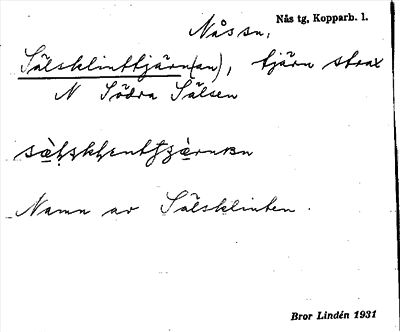 Nås sn.
Nås tg, Kopparb. l.
Sälsklinttjärn(an), tjärn strax
N Södra Sälsen
Namn av Sälsklinten.
Bror Lindén 1931